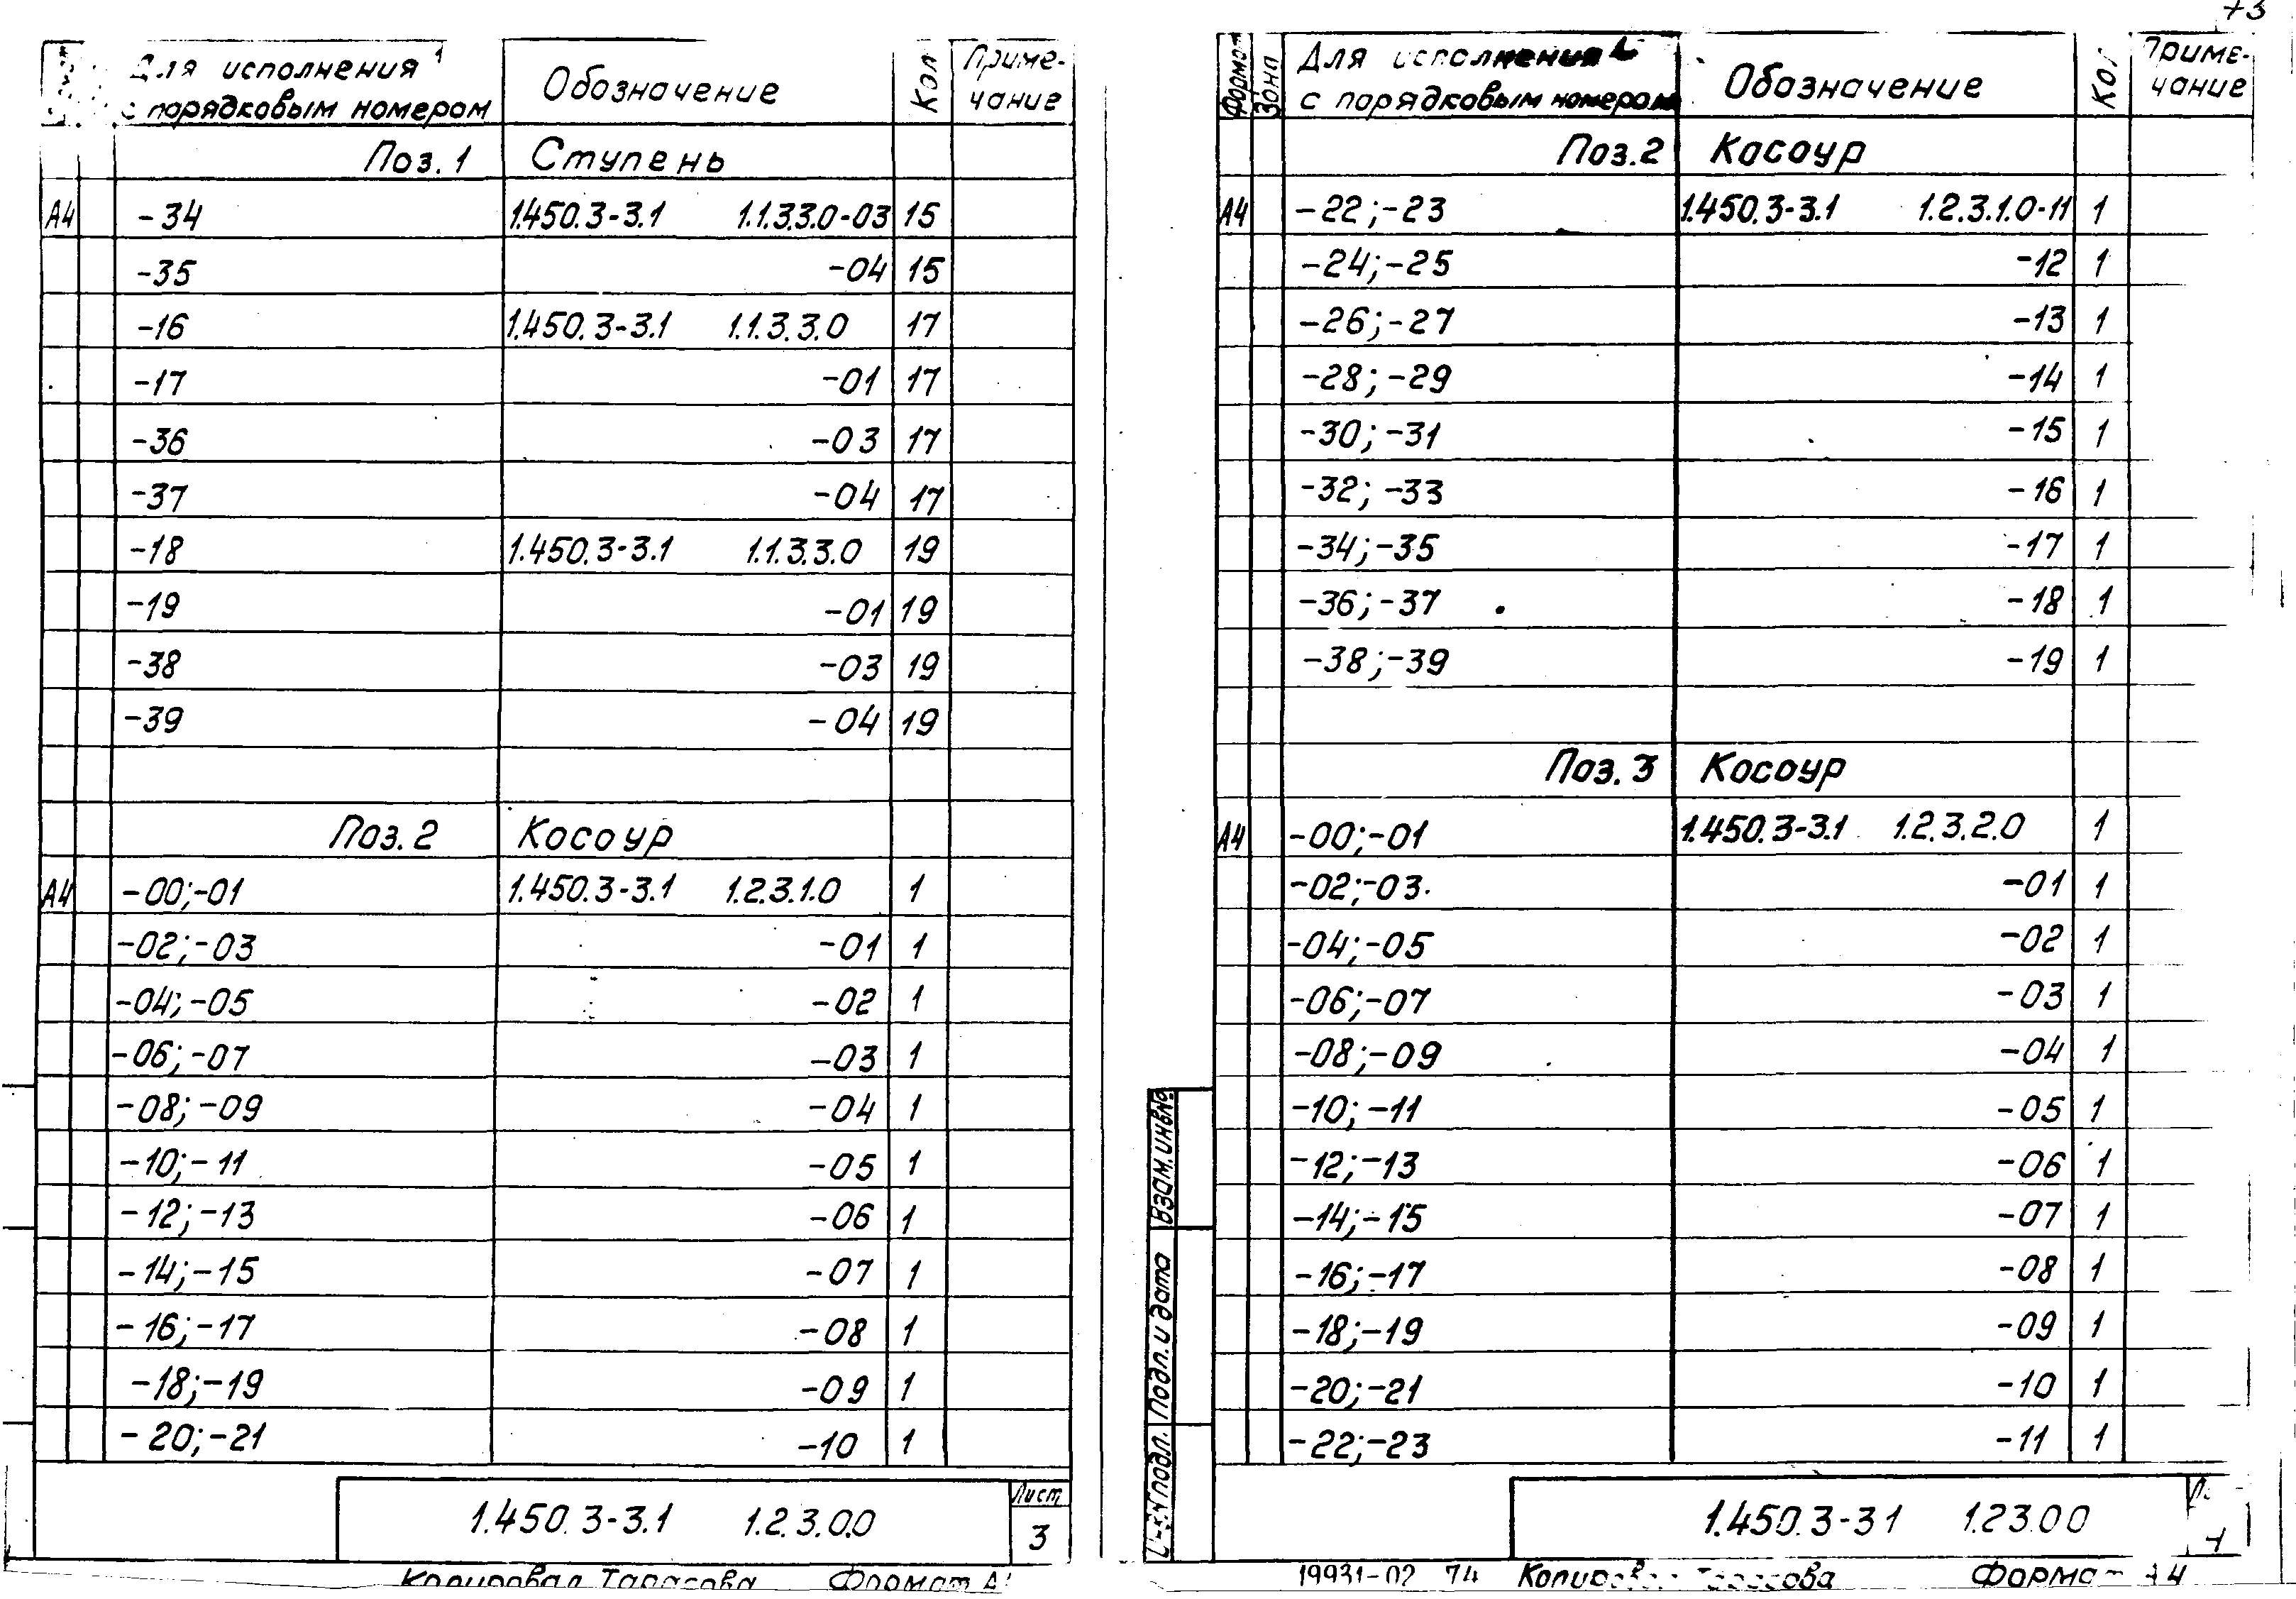 Для исполнения Обозначение Кол Приме-
с порядковым номером чание
Поз. 1 Ступень
А4 -34 1.450.3-3.1 1.1.3.3.0-03 15
-35 -04 15
-16 1.450.3-3.1 1.1.3.3.0 17
-17 -01 17
-36 -03 17
-37 -04 17
-18 1.450.3-3.1 1.1.3.3.0 19
-19 -01 19
-38 -03 19
-39 -04 19
Поз. 2 Косоур
А4 -00;-01 1.450.3-3.1 1.2.3.1.0 1
-02;-03 -01 1
-04;-05 -02 1
-06;-07 -03 1
-08;-09 -04 1
-10;-11 -05 1
-12;-13 -06 1
-14;-15 -07 1
-16;-17 -08 1
-18;-19 -09 1
-20;-21 -10 1
1.450.3-3.1 1.2.3.0.0 Лист
3
Копировал Тарасова Формат А
73
Формат Зона Для исполнения Обозначение Кол Приме-
с порядковым номером чание
Поз.2 Косоур
А4 -22;-23 1.450.3-3.1 1.2.3.1.0-11 1
-24;-25 -12 1
-26;-27 -13 1
-28;-29 -14 1
-30;-31 -15 1
-32;-33 -16 1
-34;-35 -17 1
-36;-37 -18 1
-38;-39 -19 1
Поз. 3 Косоур
А4 -00;-01 1.450.3-3.1 1.2.3.2.0 1
-02;-03 -01 1
-04;-05 -02 1
-06;-07 -03 1
-08;-09 -04 1
-10;-11 -05 1
-12;-13 -06 1
-14;-15 -07 1
-16;-17 -08 1
-18;-19 -09 1
-20;-21 -10 1
-22;-23 -11 1
Взам.инв№
Подп. и дата
подл.
1.450.3-3.1 1.2.3.0.0
4
19931-02 74 Формат А4